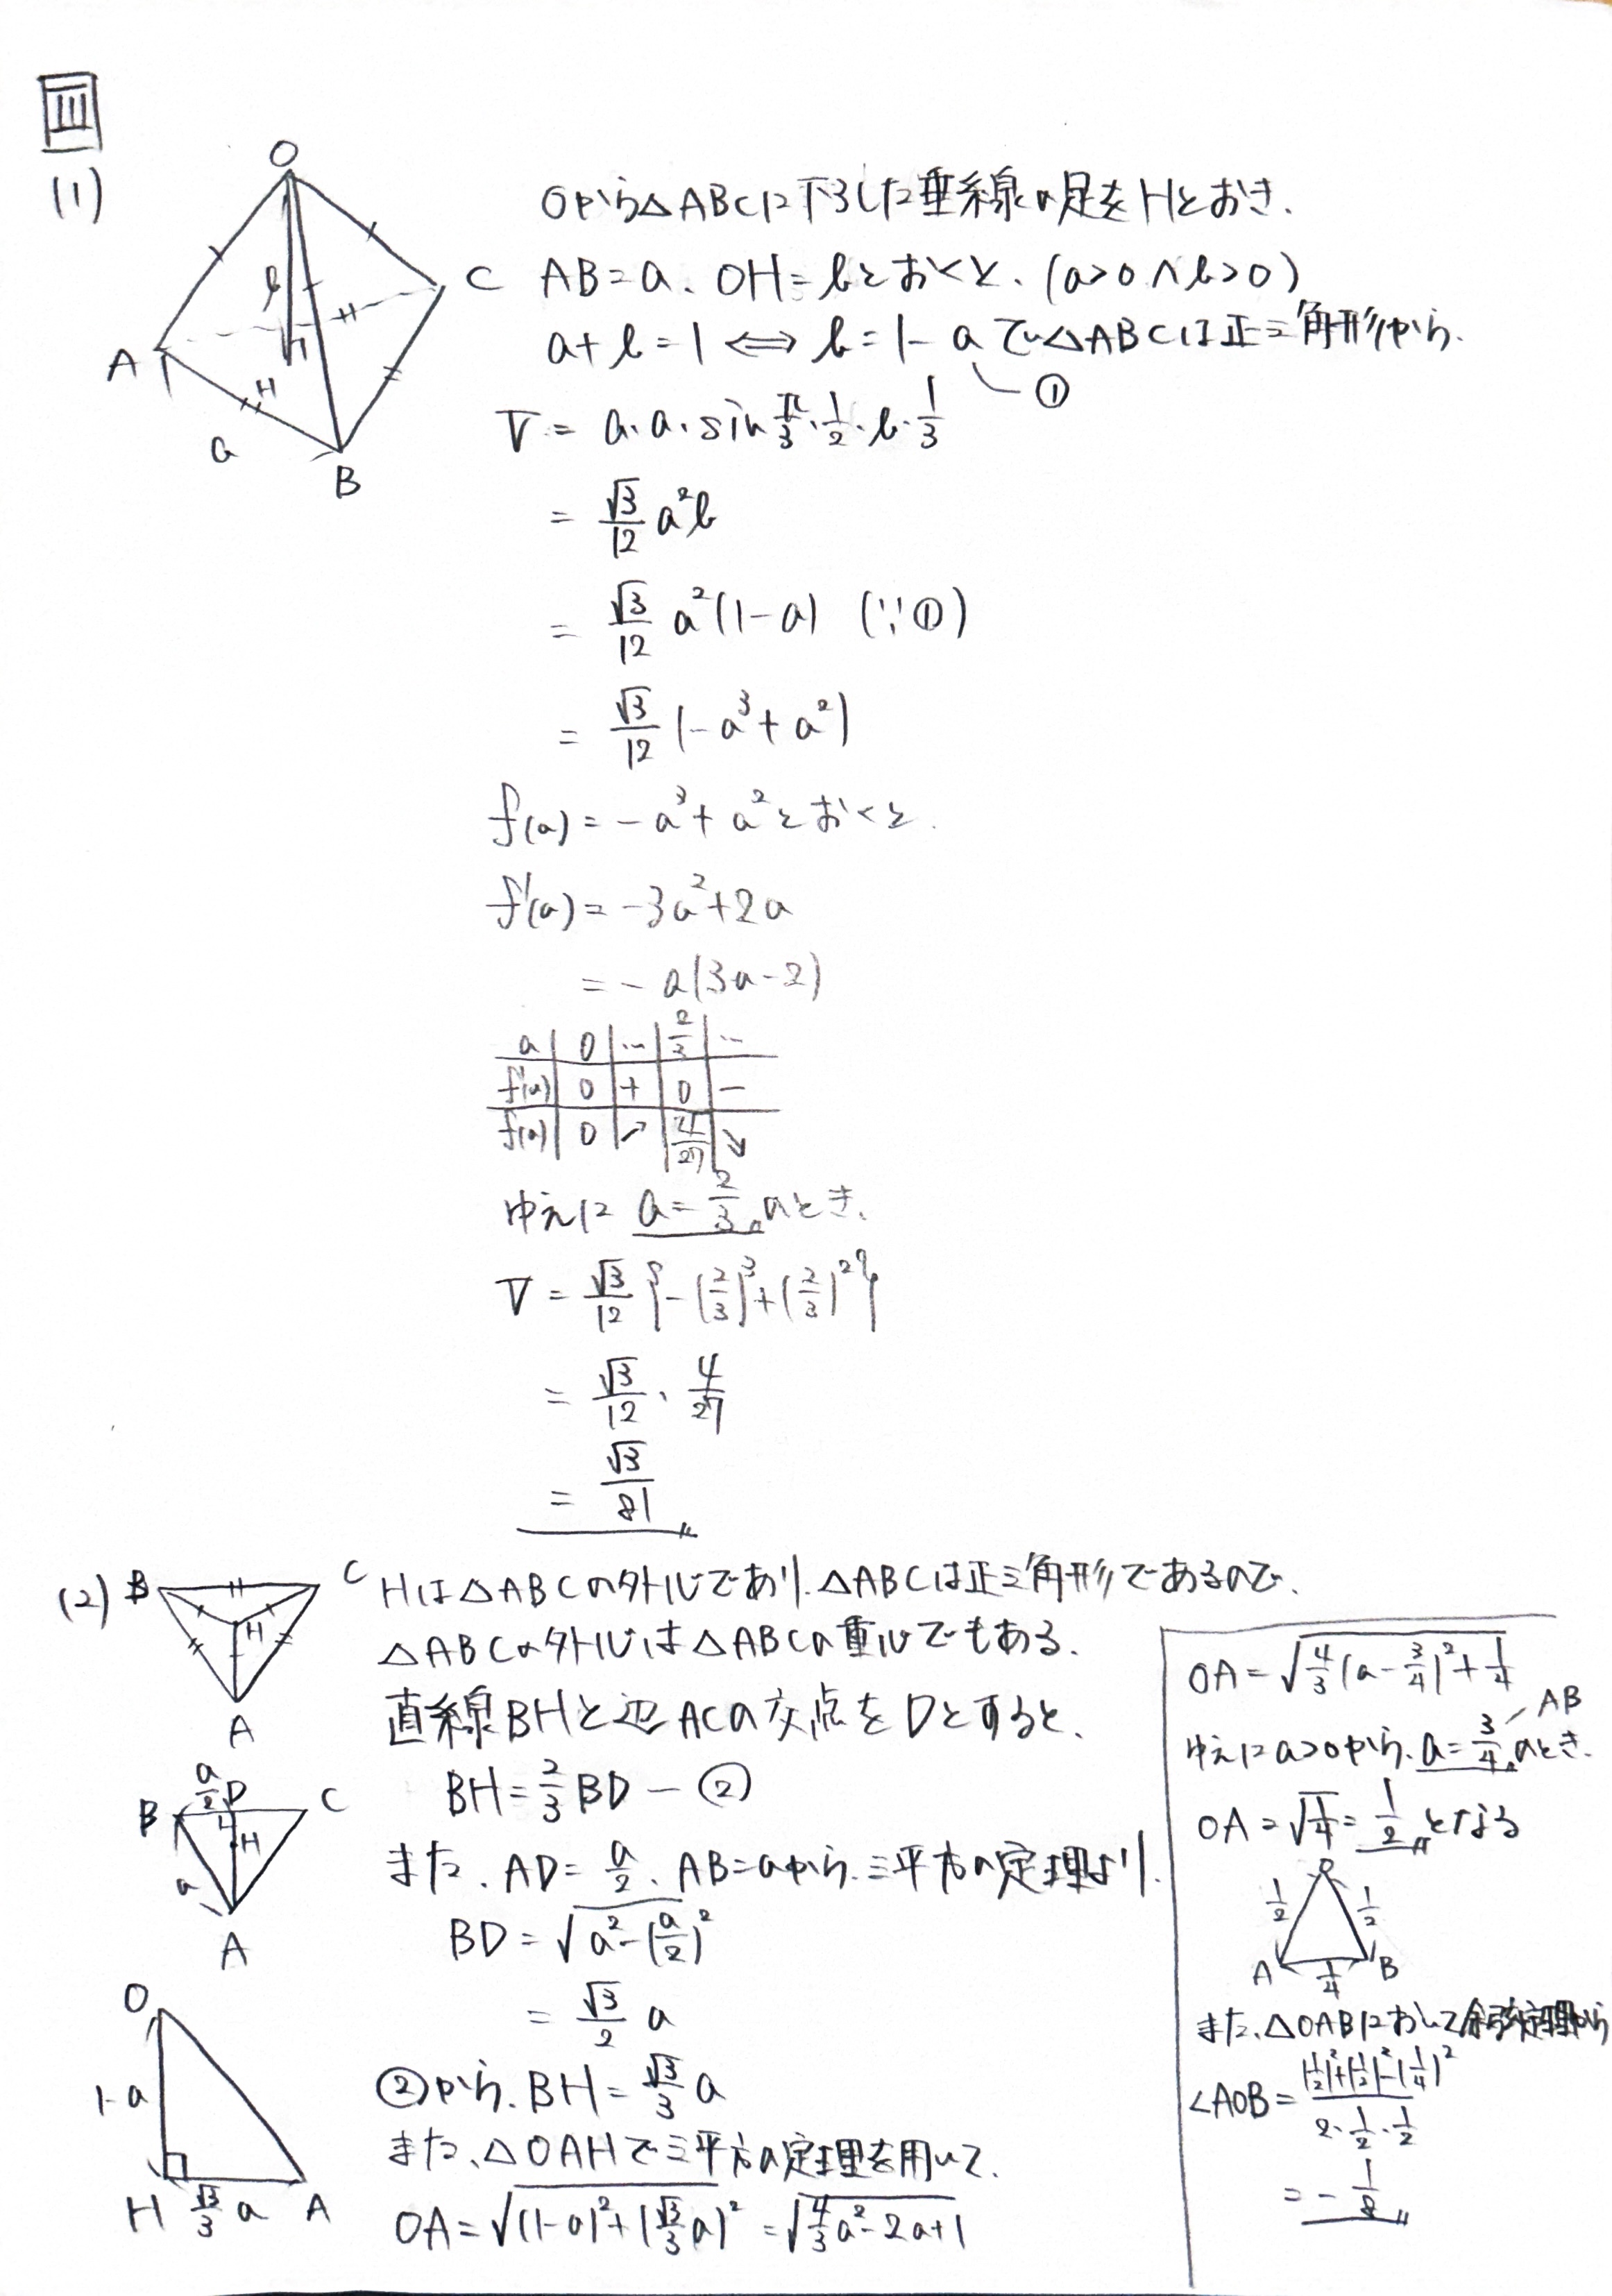 III
(1)
O
A
B
C
H
a
b
Oから△ABCに下ろした垂線の足をHとおき、
AB=a、OH=bとおくと、(a>0∧b>0)
a+b=1⟺b=1-aで△ABCは正三角形から、
①
V=a・a・sin π/3・1/2・b・1/3
=√3/12 a²b
=√3/12 a²(1-a) (∵①)
=√3/12 (-a³+a²)
f(a)=-a³+a²とおくと、
f'(a)=-3a²+2a
=-a(3a-2)
a | 0 | … | 2/3 | …
f'(a) | 0 | + | 0 | −
f(a) | 0 | ↗ | 4/27 | ↘
ゆえに a=2/3 のとき、
V=√3/12 {-(2/3)³+(2/3)²}
=√3/12・4/27
=√3/81
(2)
B C
H
A
Hは△ABCの外心であり、△ABCは正三角形であるので、
△ABCの外心は△ABCの重心でもある。
直線BHと辺ACの交点をDとすると、
BH=2/3 BD ー ②
a/2 D
B C
H
a
A
また、AD=a/2、AB=aから、三平方の定理より、
BD=√(a²-(a/2)²)
=√3/2 a
②から、BH=√3/3 a
また、△OAHで三平方の定理を用いて、
OA=√((1-a)²+(√3/3 a)²)=√(4/3 a²-2a+1)
O
1-a
H √3/3 a A
OA=√(4/3(a-3/4)²+1/4)
AB
ゆえにa>0から、a=3/4 のとき、
OA=√(1/4)=1/2 となる
O
1/2 1/2
A 1/4 B
また、△OABにおいて余弦定理から
∠AOB=((1/2)²+(1/2)²-(1/4)²)/(2・1/2・1/2)
=-1/8